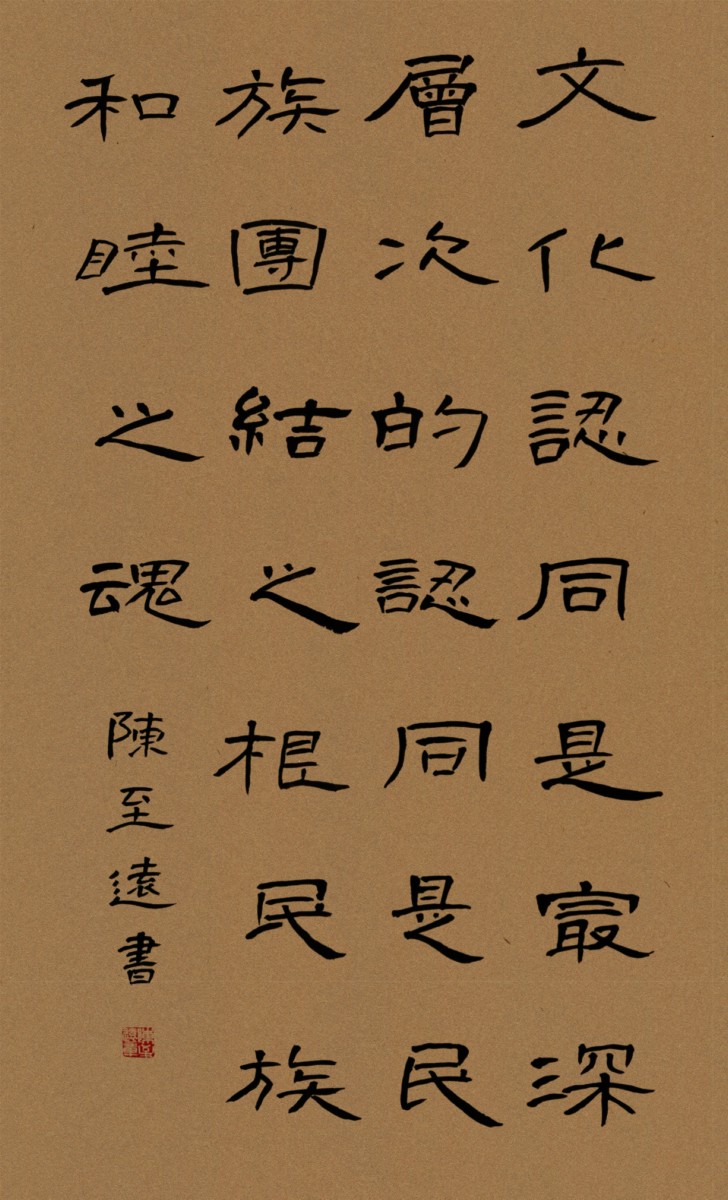 文化認同是㝡深
層次的認同是民
族團結之根民族
和睦之魂
陳至遠書